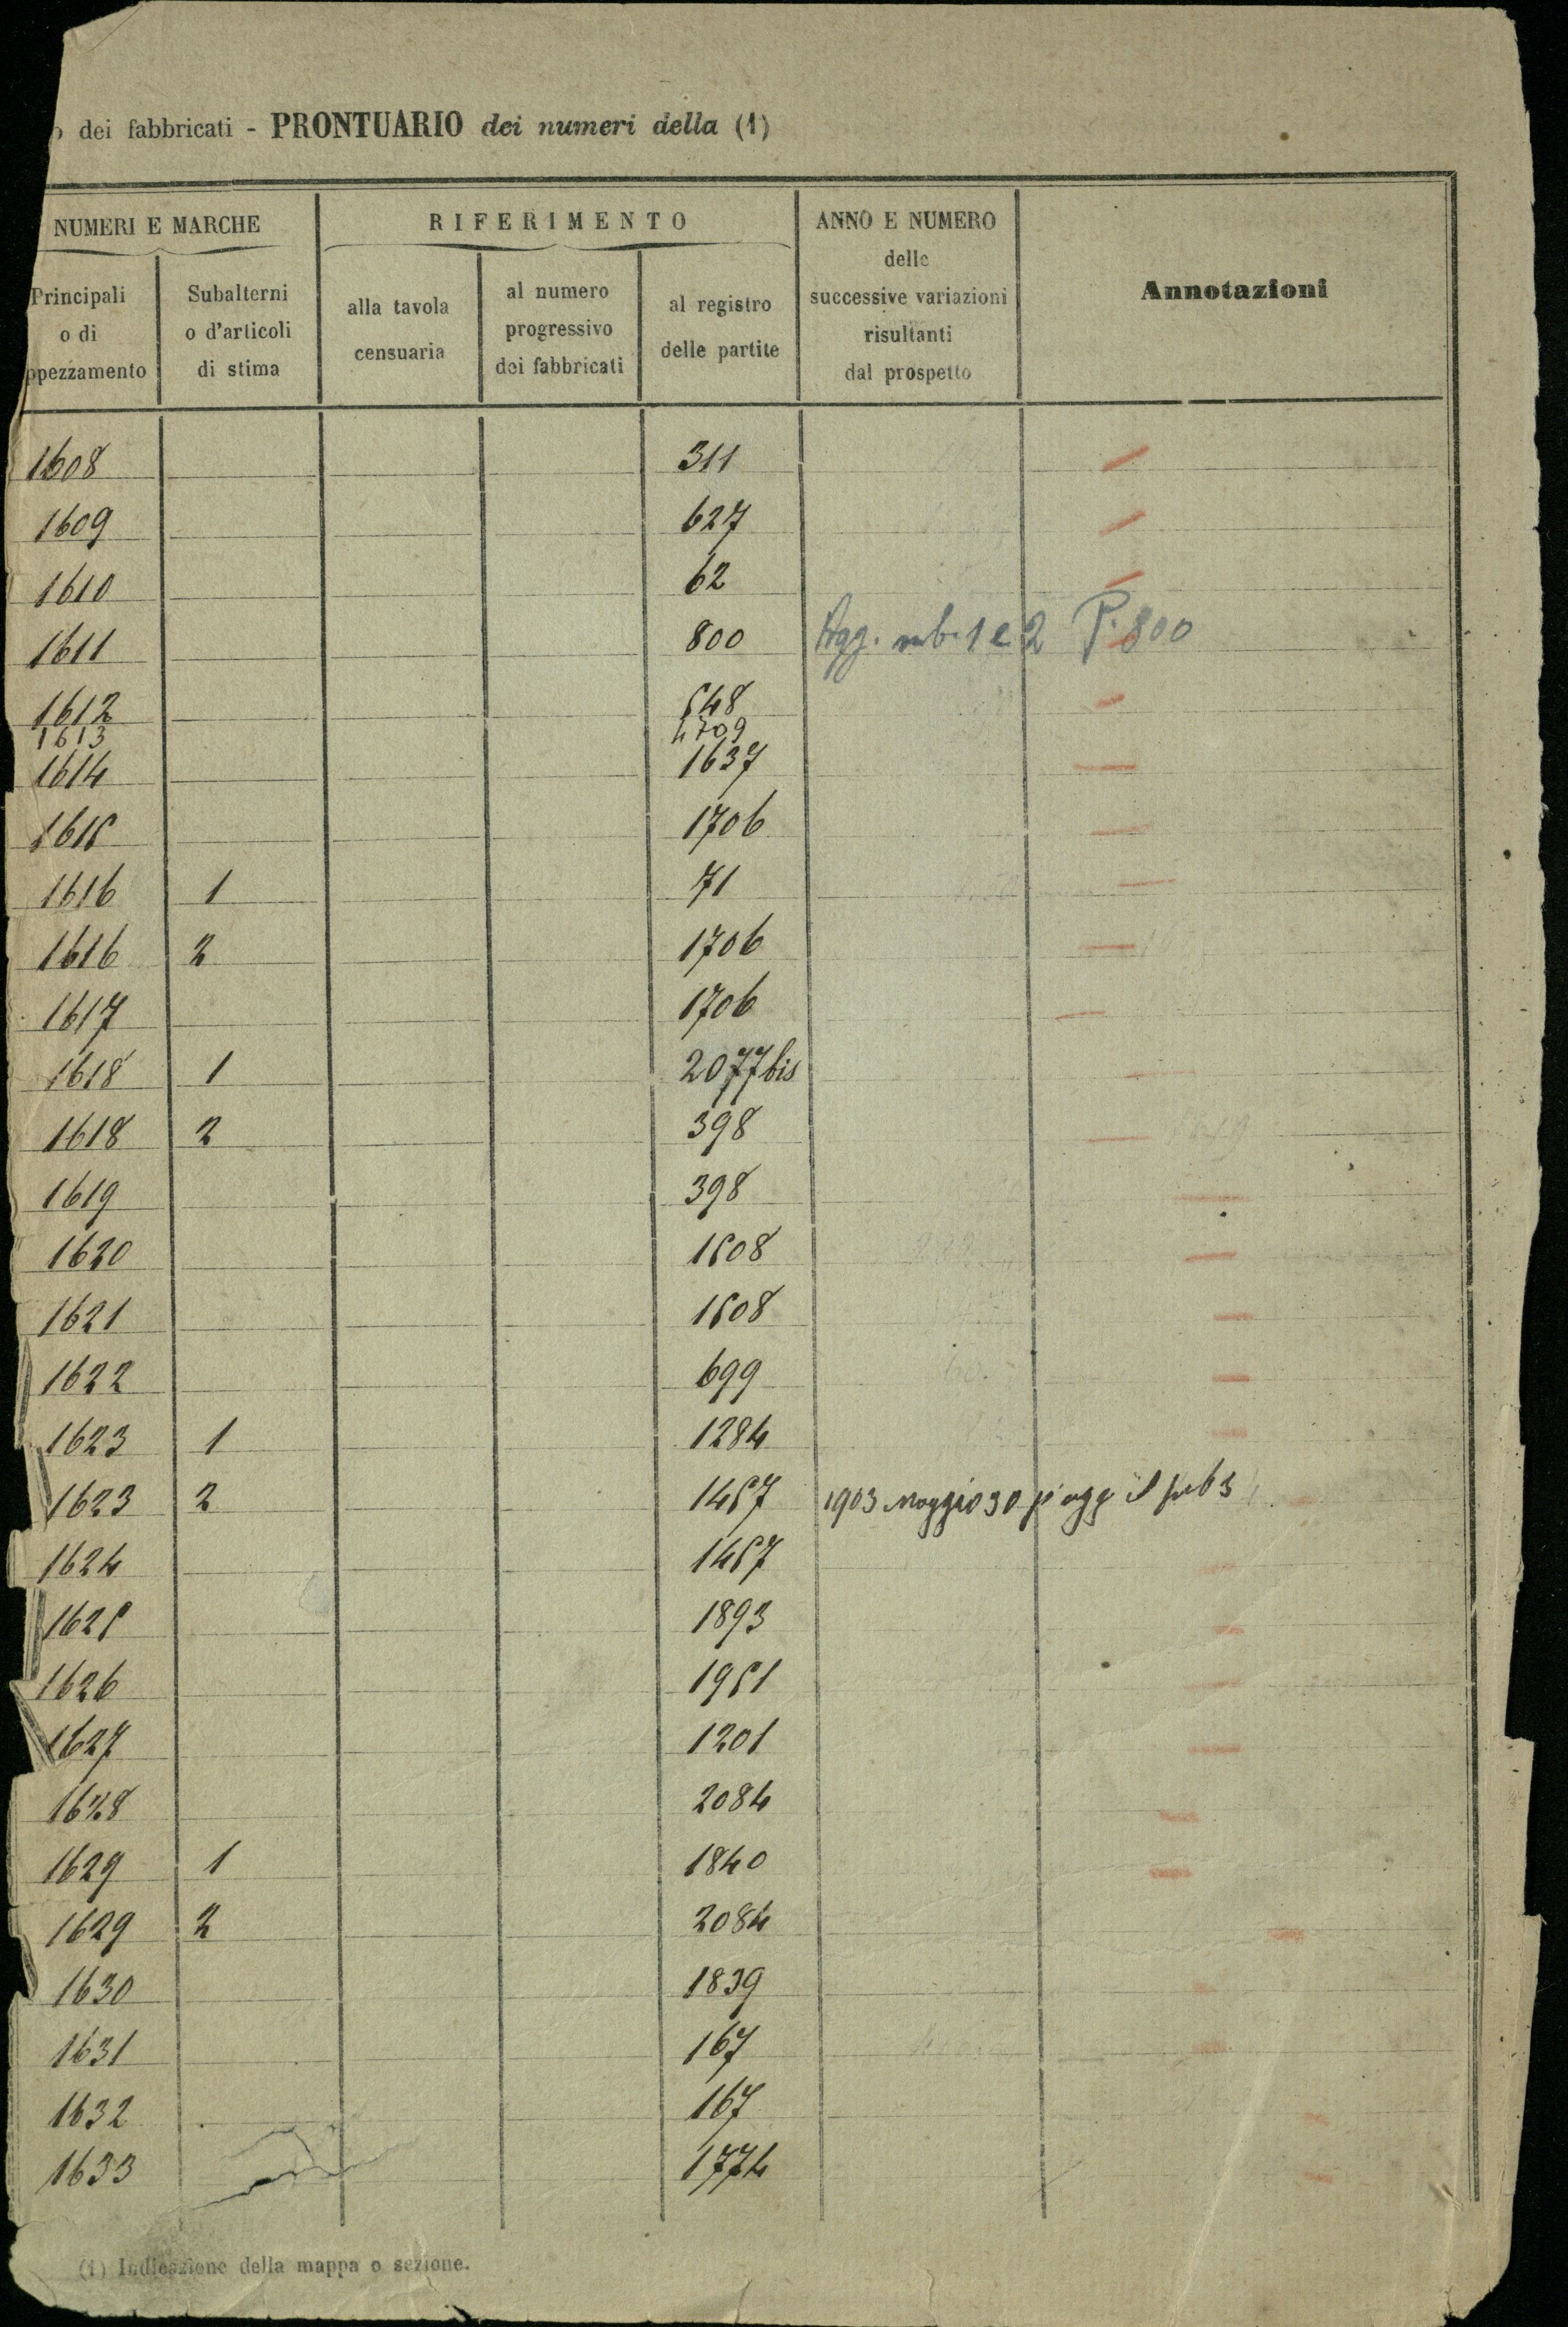 dei fabbricati - PRONTUARIO dei numeri della (1)
NUMERI E MARCHE
RIFERIMENTO
ANNO E NUMERO
delle
successive variazioni
risultanti
dal prospetto
Annotazioni
Principali
o di
ppezzamento
Subalterni
o d'articoli
di stima
alla tavola
censuaria
al numero
progressivo
dei fabbricati
al registro
delle partite
1608 311
1609 627
1610 62
1611 800 Agg. sub. 1 e 2 P. 800
1612 548
1613 4709
1614 1637
1615 1706
1616 1 71
1616 2 1706
1617 1706
1618 1 2077 bis
1618 2 398
1619 398
1620 1508
1621 1508
1622 699
1623 1 1284
1623 2 1457 1903 Maggio 30 si agg il sub 3
1624 1457
1625 1893
1626 1951
1627 1201
1628 2084
1629 1 1840
1629 2 2084
1630 1839
1631 167
1632 167
1633 1774
(1) Indicazione della mappa o sezione.